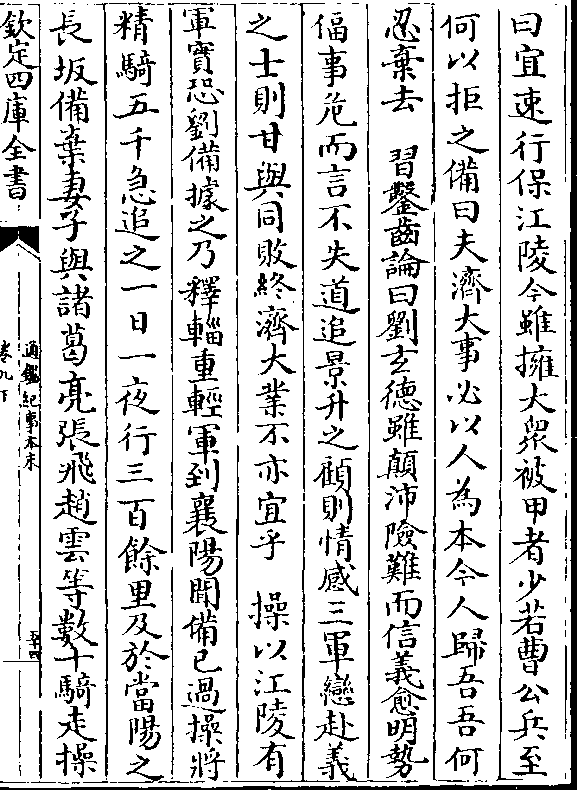 曰宜速行保江陵今雖擁大衆被甲者少若曹公兵至
何以拒之備曰夫濟大事必以人為本今人歸吾吾何
忍棄去　習鑿齒論曰劉玄德雖顛沛險難而信義愈明勢
偪事危而言不失道追景升之顧則情感三軍戀赴義
之士則甘與同敗終濟大業不亦宜乎　操以江陵有
軍實恐劉備據之乃釋輜重輕軍到襄陽聞備已過操將
精騎五千急追之一日一夜行三百餘里及於當陽之
長坂備棄妻子與諸葛亮張飛趙雲等數十騎走操
欽定四庫全書
通鑑紀事本末
卷九下
五十四